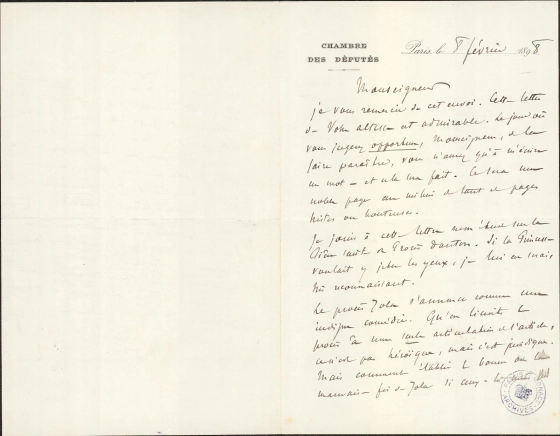 CHAMBRE
DES DÉPUTÉS
Paris, le 8 février 1898
Monseigneur
je vous remercie de cet envoi. Cette lettre
de Votre altesse est admirable. Le jour où
vous jugerez opportun, Monseigneur, de la
faire paraître, vous n'aurez qu'à m'écrire
un mot – et cela sera fait. Ce sera une
noble page au milieu de tant de pages
tristes ou honteuses.
Je joins à cette lettre une étude sur la
. Si la Princesse
voulait y jeter les yeux, je lui en serais
très reconnaissant.
Le procès Zola s'annonce comme une
indigne comédie. Qu'on limite le
procès à une seule articulation de l'article,
ce n'est pas héroïque, mais c'est juridique.
Mais comment établir la bonne ou la
mauvaise foi de Zola si ceux-
ARCHIVES